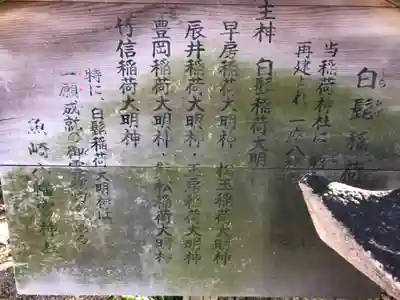 白髭稲荷
しらひげ
当稲荷神社は
再建され 一度
主神 白髭稲荷大明
早房稲荷大明神 松玉稲荷大明神
辰井稲荷大明神・玉房稲荷大明神
豊岡稲荷大明神・松稲荷大明神
竹信稲荷大明神
特に、白髭稲荷大明神は
一願成就の御霊
魚崎八幡神社